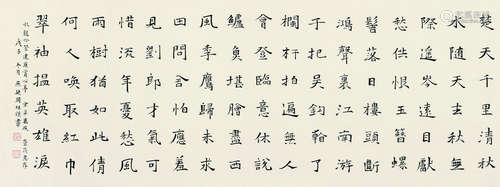 楚天千里清秋
水隨天去秋無
際遙岑遠目獻
愁供恨玉簪螺
髻落日樓頭斷
鴻聲裏江南游
子把吳鉤看了
欄干拍遍無人
會登臨意休說
鱸魚堪膾盡西
風季鷹歸未求
田問舍怕應羞
見劉郎才氣可
惜流年憂愁風
雨樹猶如此倩
何人喚取紅巾
翠袖搵英雄淚
水龍吟登建康賞心亭